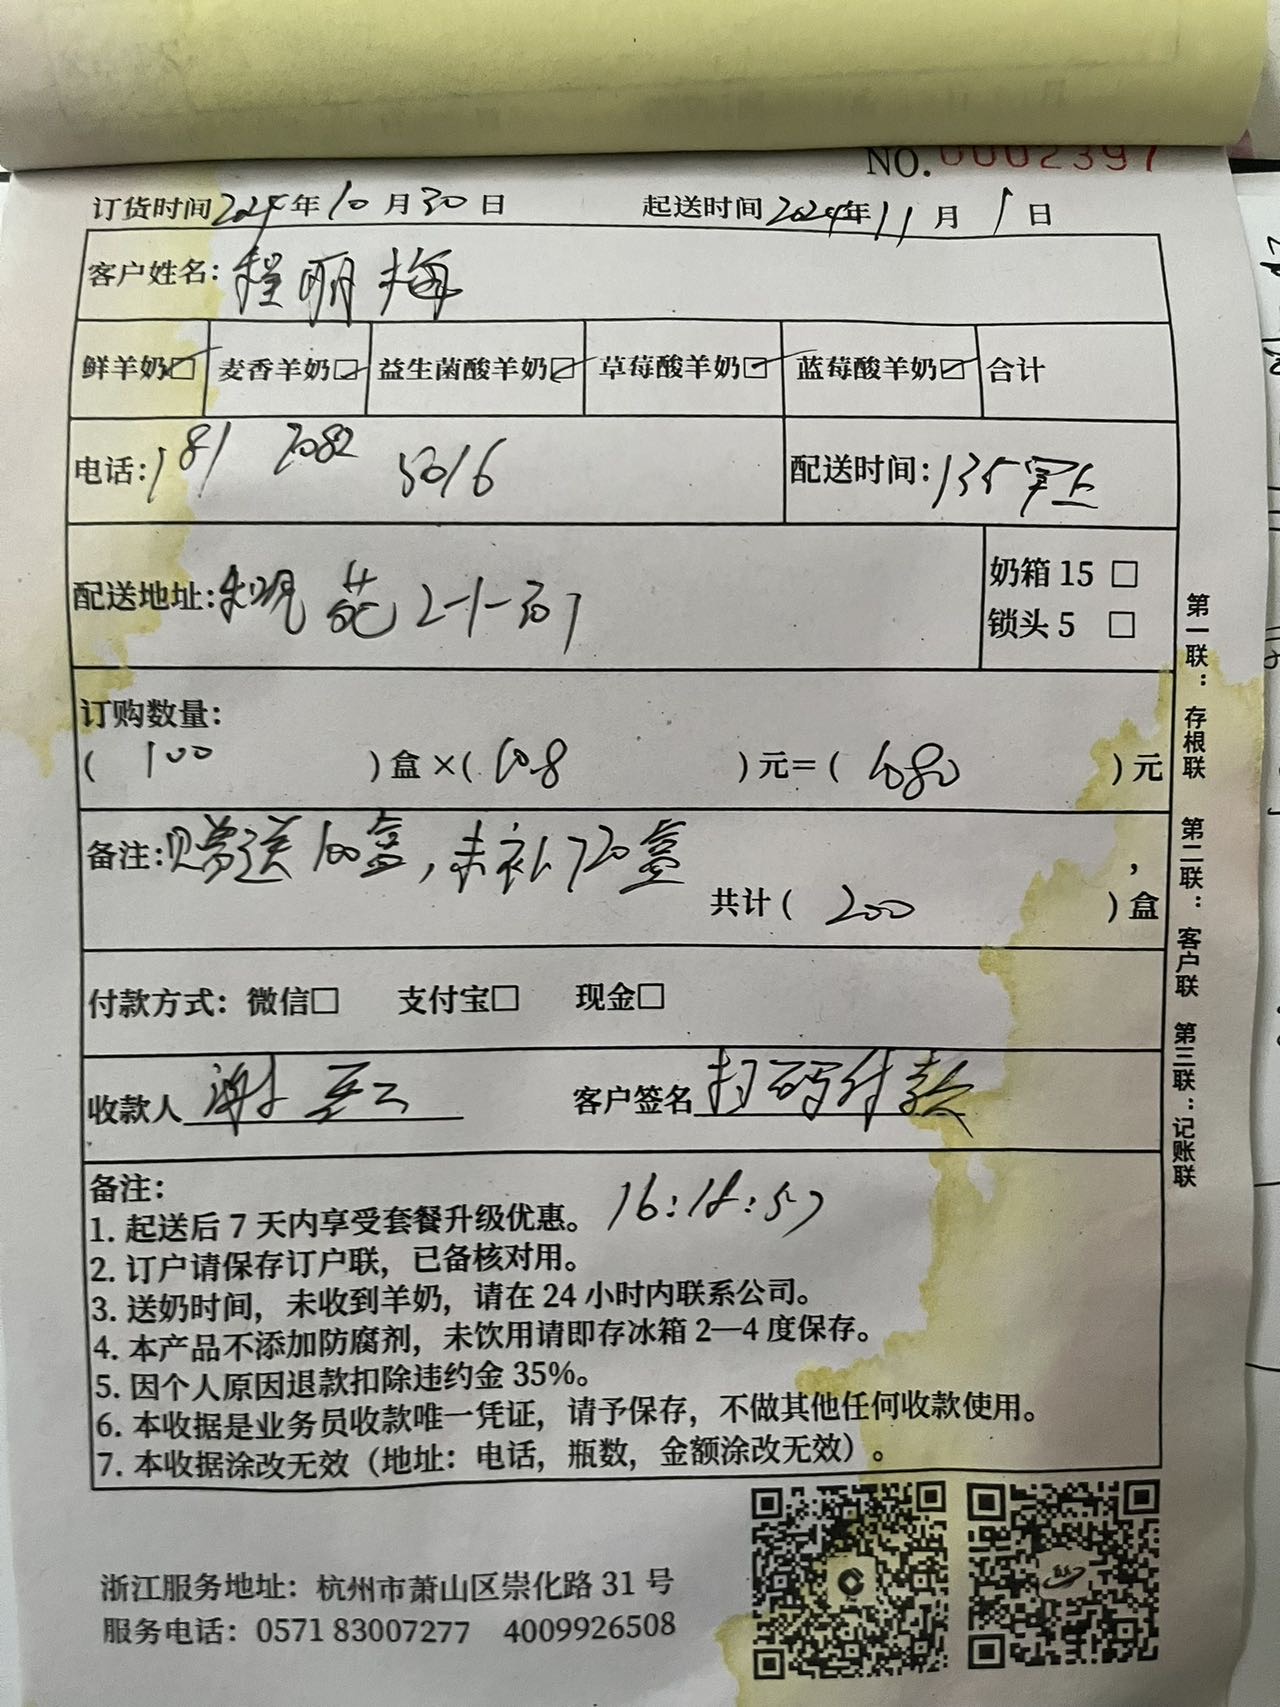 NO.0002397
订货时间2024年10月30日 起送时间2024年11月1日
客户姓名：程丽梅
鲜羊奶☑ 麦香羊奶☑ 益生菌酸羊奶☑ 草莓酸羊奶☑ 蓝莓酸羊奶☑ 合计
电话：181 7082 5016 配送时间：135
配送地址： 苑 2-1-301
奶箱 15 □
锁头 5 □
订购数量：
（ 100 ）盒 ×（ 10.8 ）元＝（ 1080 ）元
备注：赠送100盒，未补720盒 ，
共计（ 200 ）盒
付款方式：微信□ 支付宝□ 现金□
收款人 谢 云 客户签名 扫码付款
备注：
1. 起送后 7 天内享受套餐升级优惠。 16:18:57
2. 订户请保存订户联，已备核对用。
3. 送奶时间，未收到羊奶，请在 24 小时内联系公司。
4. 本产品不添加防腐剂，未饮用请即存冰箱 2—4 度保存。
5. 因个人原因退款扣除违约金 35%。
6. 本收据是业务员收款唯一凭证，请予保存，不做其他任何收款使用。
7. 本收据涂改无效（地址：电话，瓶数，金额涂改无效）。
第一联：存根联 第二联：客户联 第三联：记账联
浙江服务地址：杭州市萧山区崇化路 31 号
服务电话：0571 83007277 4009926508